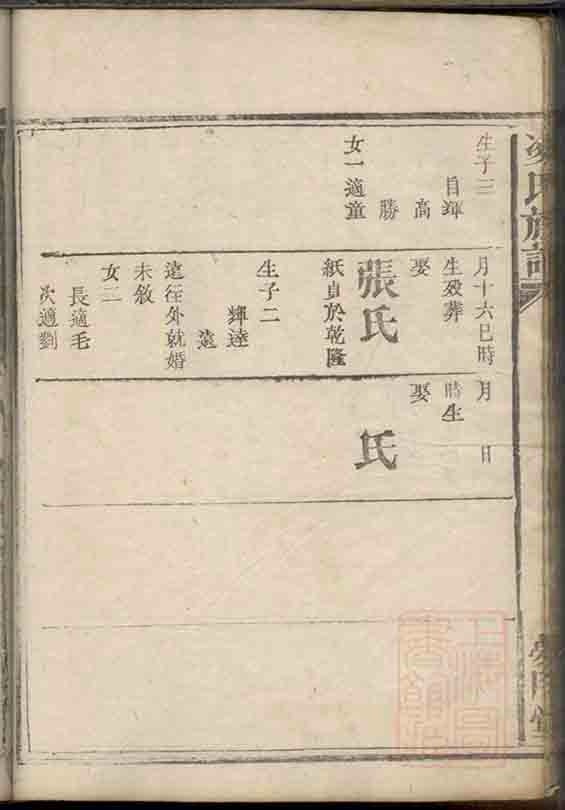 氏族譜
生子三
自輝
高
勝
女一適童
月十六巳時
生歿葬
娶
張氏
紙貞於乾隆
生子二
輝達
遠
遠在外就婚
未敘
女二
長適毛
次適劉
月 日
時生
娶
氏
堂